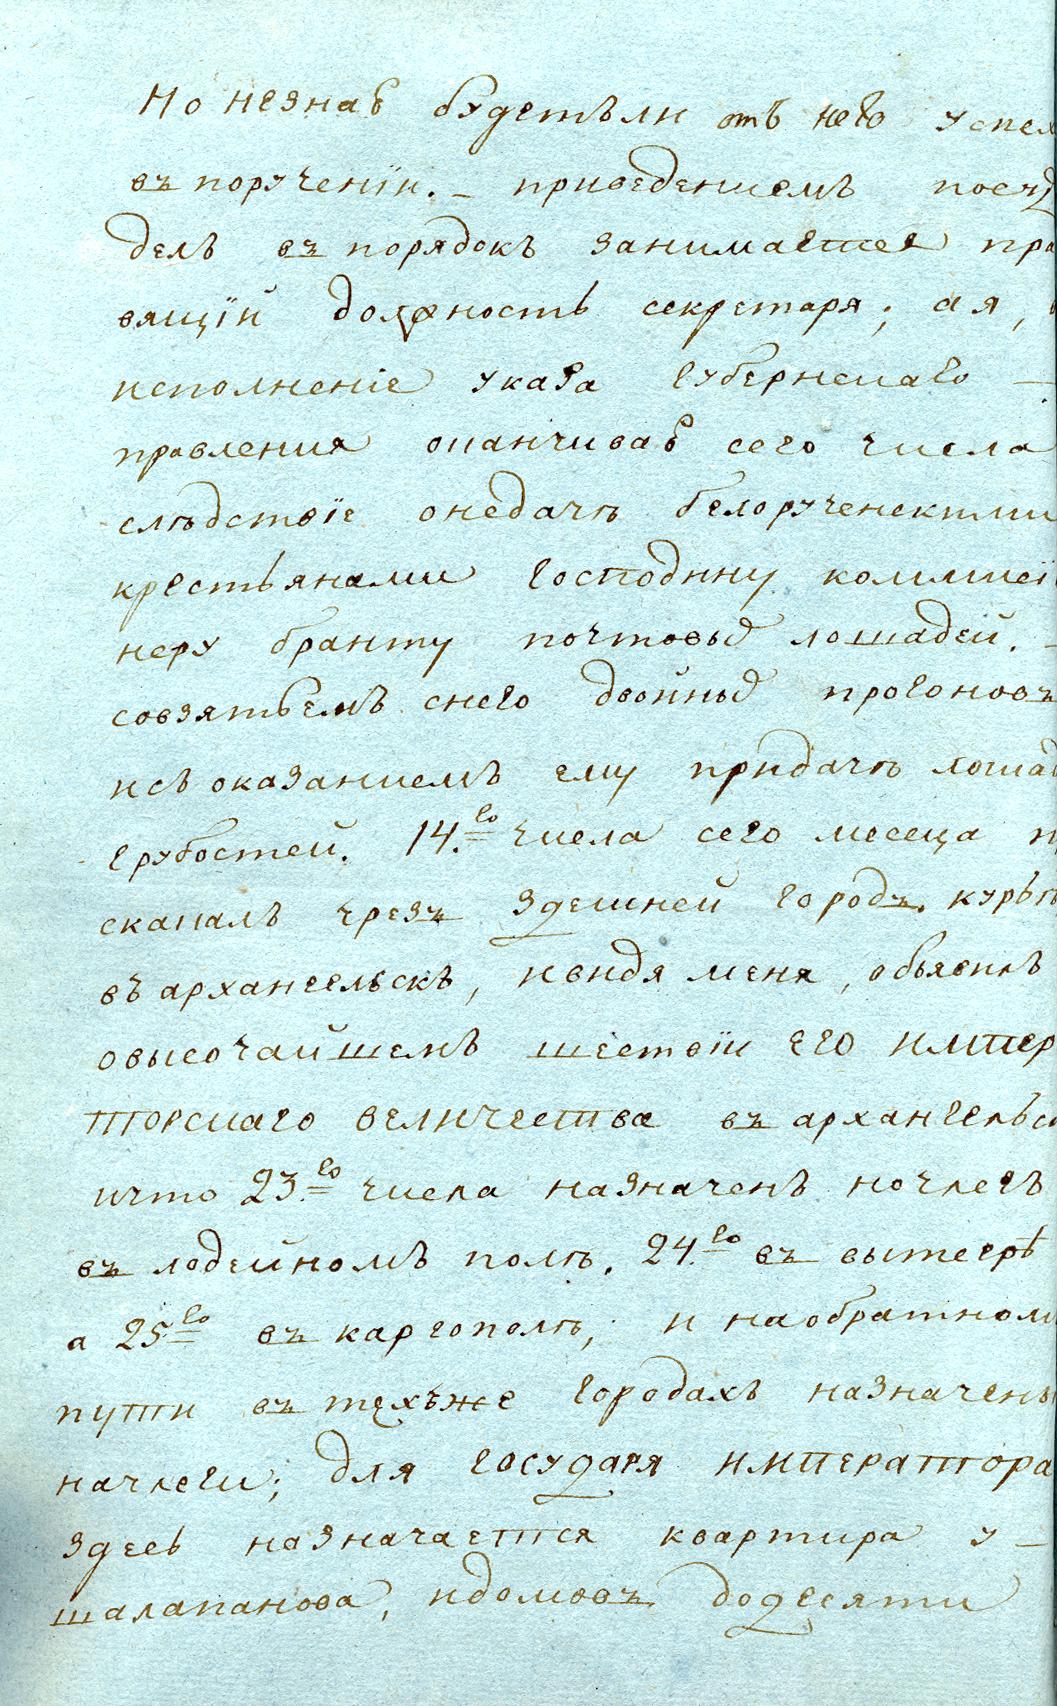 Но незнаю будетъли отъ него успех
въ порученіи. – приведениемъ
делъ въ порядокъ занимается пра
вящій должность секретаря; а я, в
исполненіе указа Губернскаго –
правления оканчиваю сего числа
слѣдствіе онедачѣ белорученскими
крестьянами Господину коммисіо
неру бранту почтовыхъ лошадей. –
совзятьемъ снего двойныхъ прогоновъ
исъ оказаниемъ ему придачѣ лошад
грубостей. 14.го числа сего месеца п
скакалъ чрезъ здешней городъ курье
въ архангельскъ, ивидя меня, объявилъ
овысочайшемъ шествіи ЕГО ИМПЕР
ТОРСКАГО ВЕЛИЧЕСТВА въ архангельск
ичто 23.го числа назначенъ ночлегъ
въ лодейномъ полѣ, 24.го въ вытегрѣ
а 25го въ каргополѣ; и наобратном
пути въ техъже городахъ назначены
начлеги; для ГОСУДАРЯ ИМПЕРАТОРА
здесь назначается квартира у –
шалапанова, идомовъ додесяти